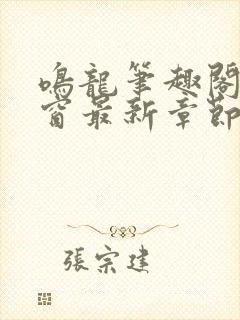 鳴龍筆趣閣
窗最新章節
張宗建